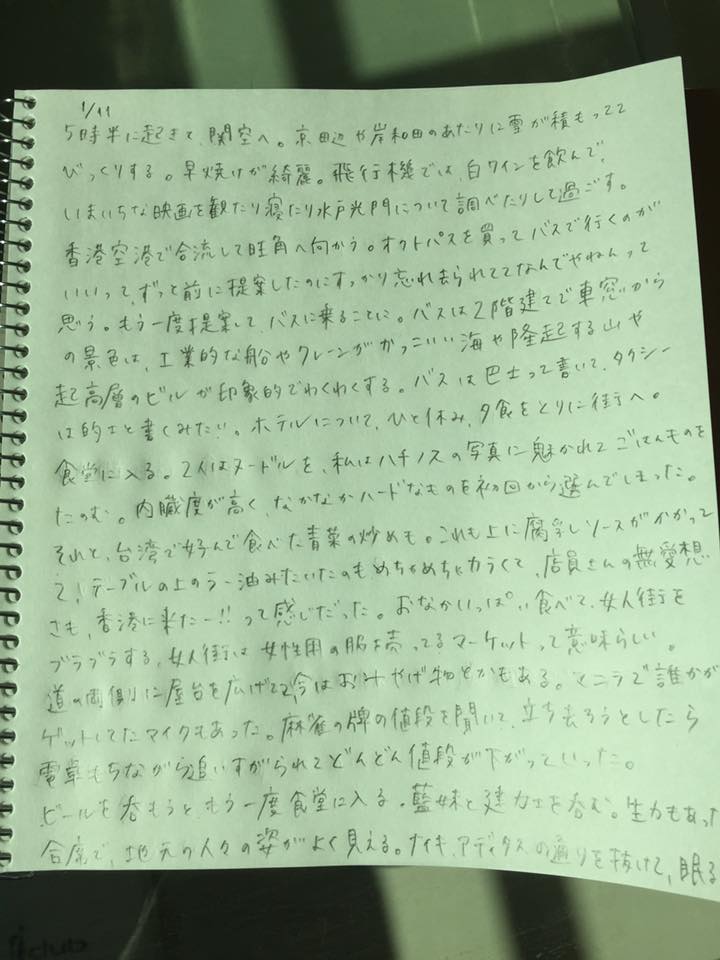 1/11
5時半に起きて、関空へ。京田辺や岸和田のあたりに雪が積もってて
びっくりする。早焼けが綺麗。飛行機では、白ワインを飲んで、
いまいちな映画を観たり寝たり水戸光門について調べたりして過ごす。
香港空港で合流して旺角へ向かう。オクトパスを買ってバスで行くのが
いいって、ずっと前に提案したのにすっかり忘れ去られててなんでやねんって
思う。もう一度提案して、バスに乗ることに。バスは2階建てで車窓から
の景色は、工業的な船やクレーンがかっこいい海や隆起する山や
超高層のビルが印象的でわくわくする。バスは巴士って書いて、タクシー
は的士と書くみたい。ホテルについて、ひと休み、夕食をとりに街へ。
食堂に入る。2人はヌードルを、私はハチノスの写真に魅かれてごはんものを
たのむ。内臓度が高く、なかなかハードなものを初回から選んでしまった。
それと、台湾で好んで食べた青菜の炒めも。これも上に腐乳ソースがかかって
て!テーブルの上のラー油みたいたのもめちゃめちゃカラくて、店員さんの無愛想
さも、香港に来たー!!って感じだった。おなかいっぱい食べて、女人街を
ブラブラする。女人街は女性用の服を売ってるマーケットって意味らしい。
道の両側に屋台を広げてて今はおみやげ物とかもある。マニラで誰かが
ゲットしてたマイクもあった。麻雀の牌の値段を聞いて、立ち去ろうとしたら
電卓もちながら追いすがられてどんどん値段が下がっていった。
ビールを呑もうと、もう一度食堂に入る。藍妹と建力士を呑む。生力もあった
合席で、地元の人々の姿がよく見える。ナイキ、アディダスの通りを抜けて、眠る
club